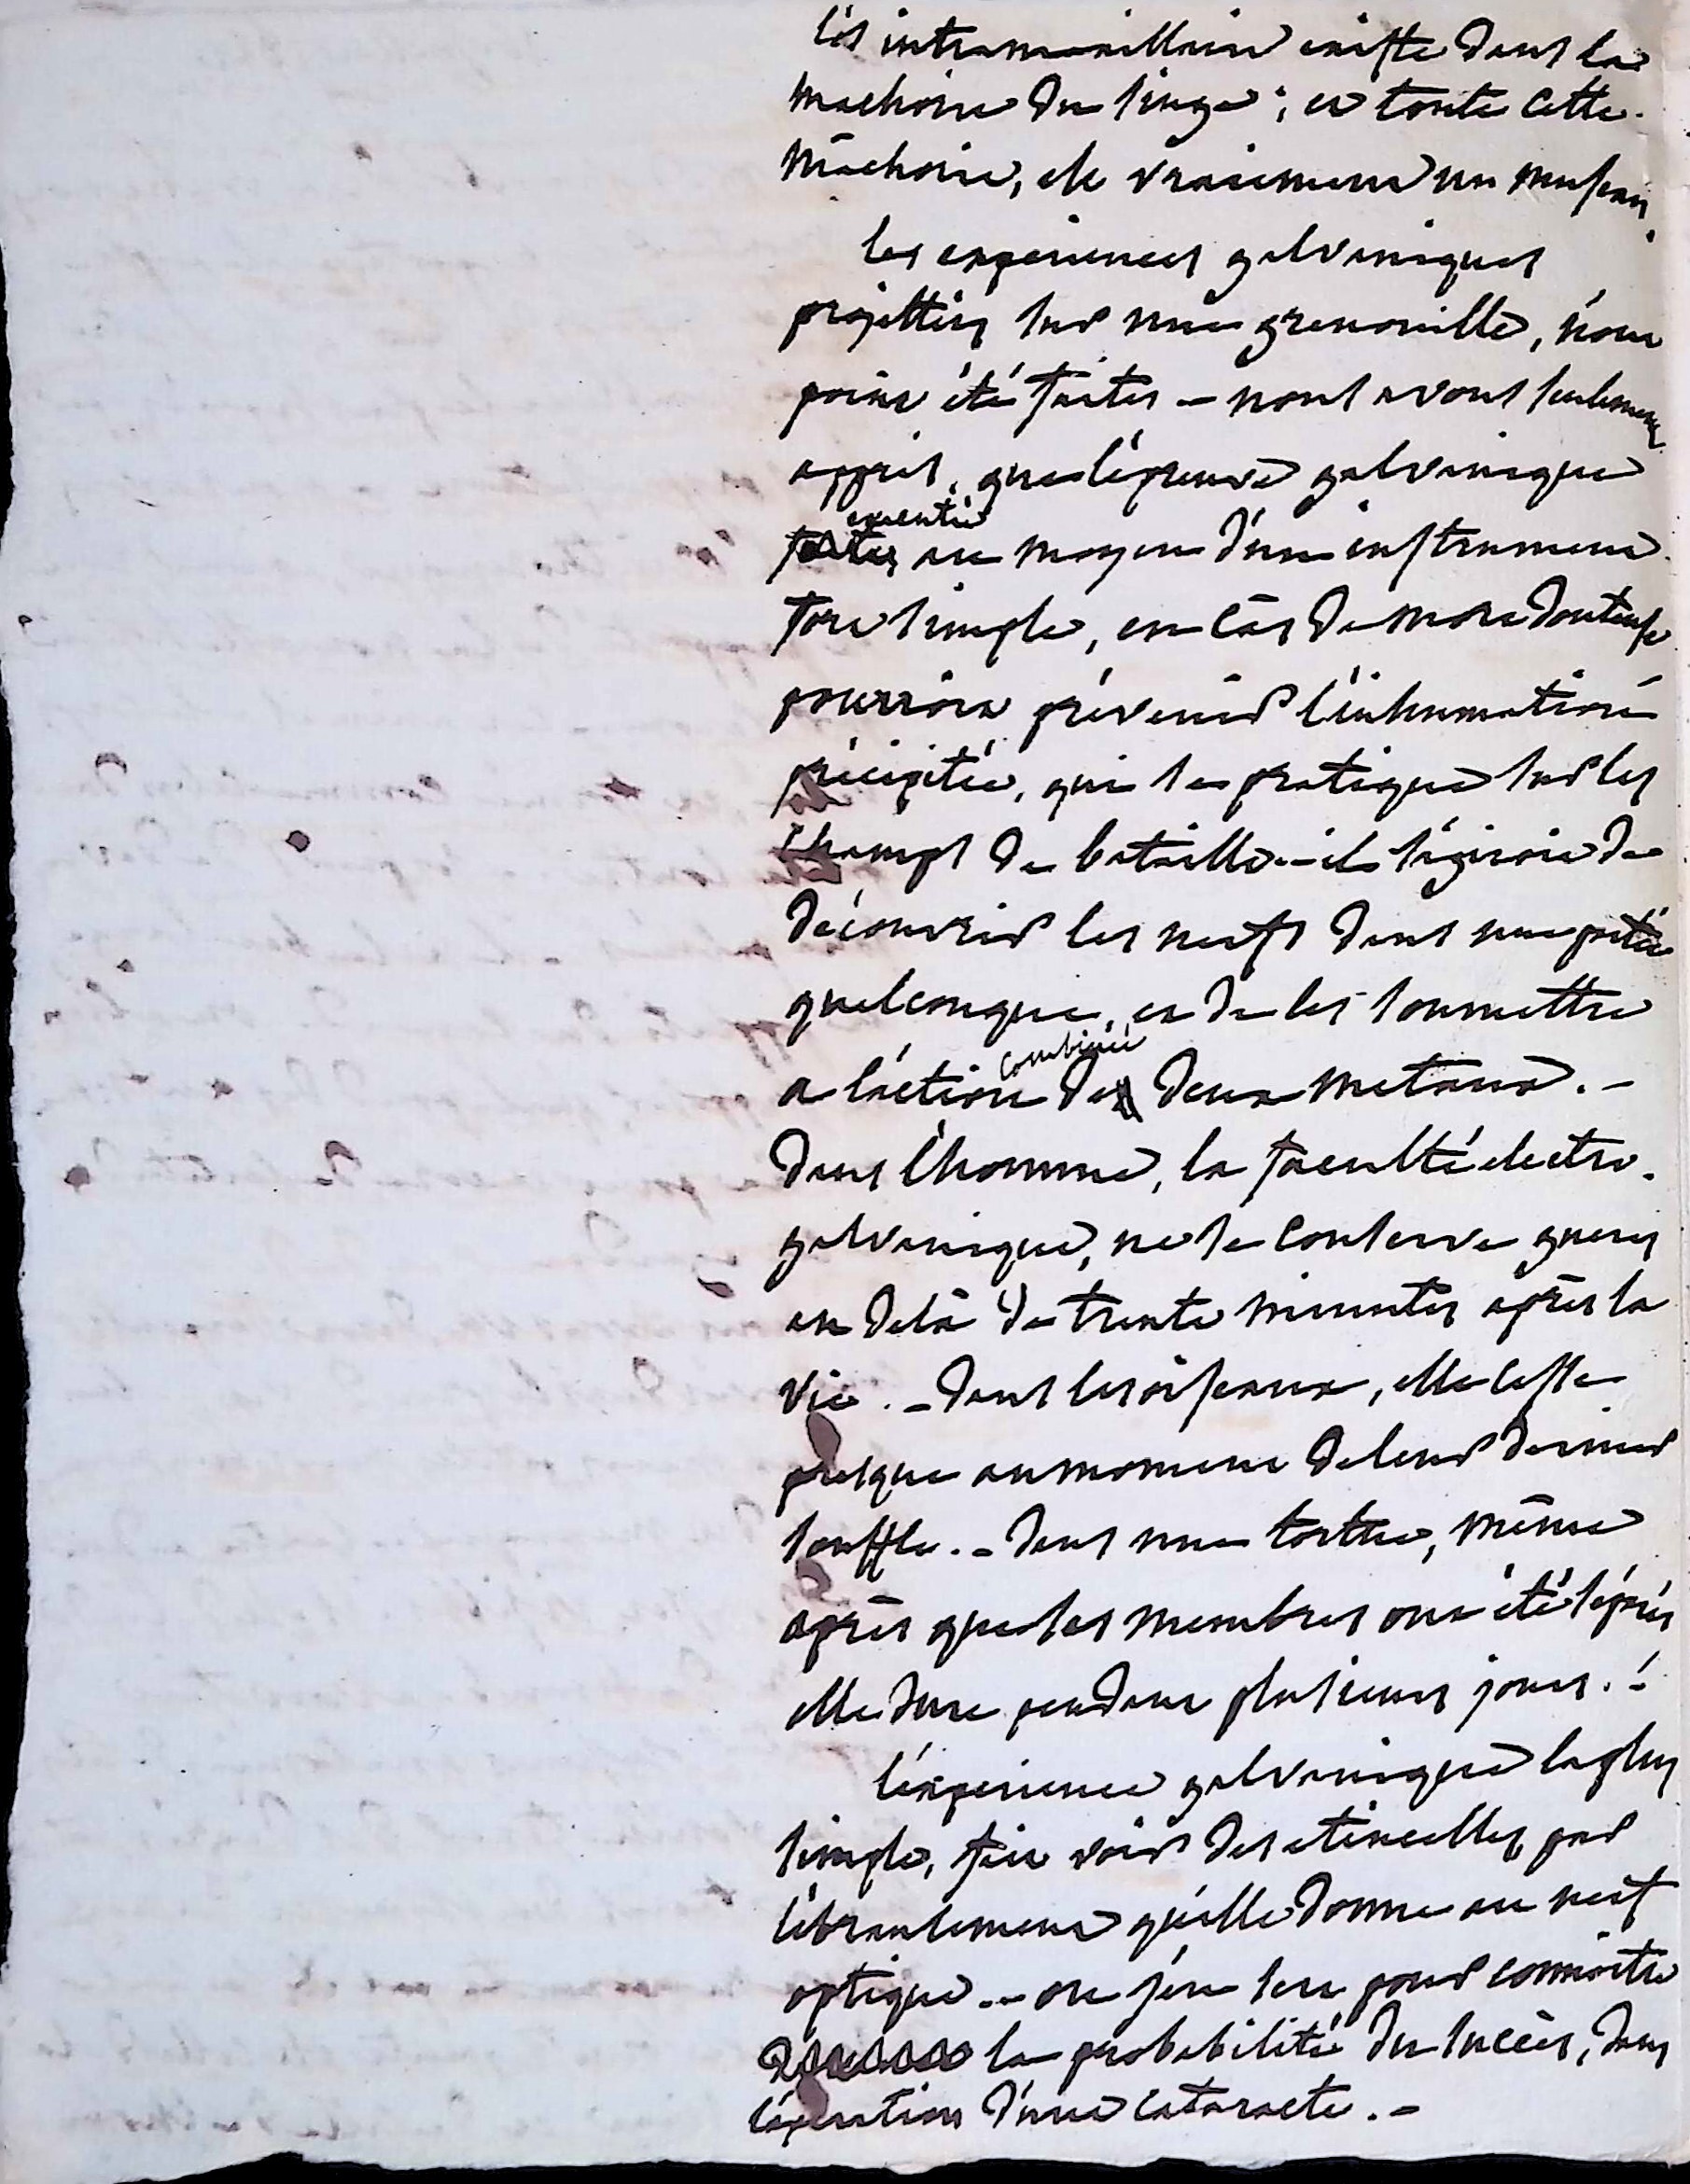 l'os intramaxillaire existe dans la
machoire du singe ; et toute cette
mâchoire, est vraiement un museau.
les experiences galvaniques
projettées sur une grenouille, n'ont
point été faites – nous avons seulement
appris, que l'épreuve galvanique
executée
au moyen d'un instrument
fort simple, en cas de mort douteuse
pourroit prévenir l'inhumation
précipitée, qui se pratique sur les
champs de bataille – il s'agiroit de
découvrir les nerfs dans une partie
quelconque, et de les soumettre
combinée
a l'action de deux metaux. –
dans l'homme, la faculté electro-
galvanique, ne se conserve gueres
au delà de trente minutes après la
vie. – dans les oiseaux, elle cesse
presque au moment de leur dernier
souffle. – dans une tortue, même
après que les membres ont été séparés
elle dure pendant plusieurs jours. –
l'experience galvanique la plus
simple, fait voir des etincelles, par
l'ébranlement qu'elle donne au nerf
optique. – on s'en sert pour connoitre
la probabilité du succès, dans
l'opération d'une cataracte. –